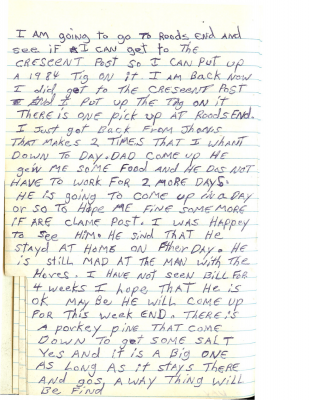 I AM going to go To Roods End AND
see if I CAN get to THE
CRESCENT POST SO I CAN PUT UP
A 1984 Tig ON it I AM BACK NOW
I did get to THE CRESCENT POST
And I PUT UP THE TAG ON it
THERE IS ONE PICK UP AT ROODS END.
I JUST got BACK FROM Jhons
THAT MAKES 2 TIMES THAT I WHANT
DOWN TO DAY. DAD COME UP HE
gew ME SOME FOOD AND HE DOS NOT
HAVE TO WORK FOR 2 MORE DAYS.
HE IS going TO COME UP IN A DAY
OR SO TO HOPE ME FINE SOME MORE
IF ARE CLAME POST. I WAS HAPPEY
TO SEE HIM. HE SIND THAT HE
STAYD AT HOME ON FTHER DAY. HE
is still MAD AT THE MAN WITH THE
HORES. I HAVE NOT SEEN BILL FOR
4 WEEKS I HOPE THAT HE IS
OK MAY BE HE WILL COME UP
FOR THIS WEEK END. THERE IS
A PORKEY PINE THAT COME
DOWN TO get SOME SALT
YES AND IT IS A BIG ONE
AS LONG AS IT STAYS THERE
AND gos A WAY THING WILL
BE FIND